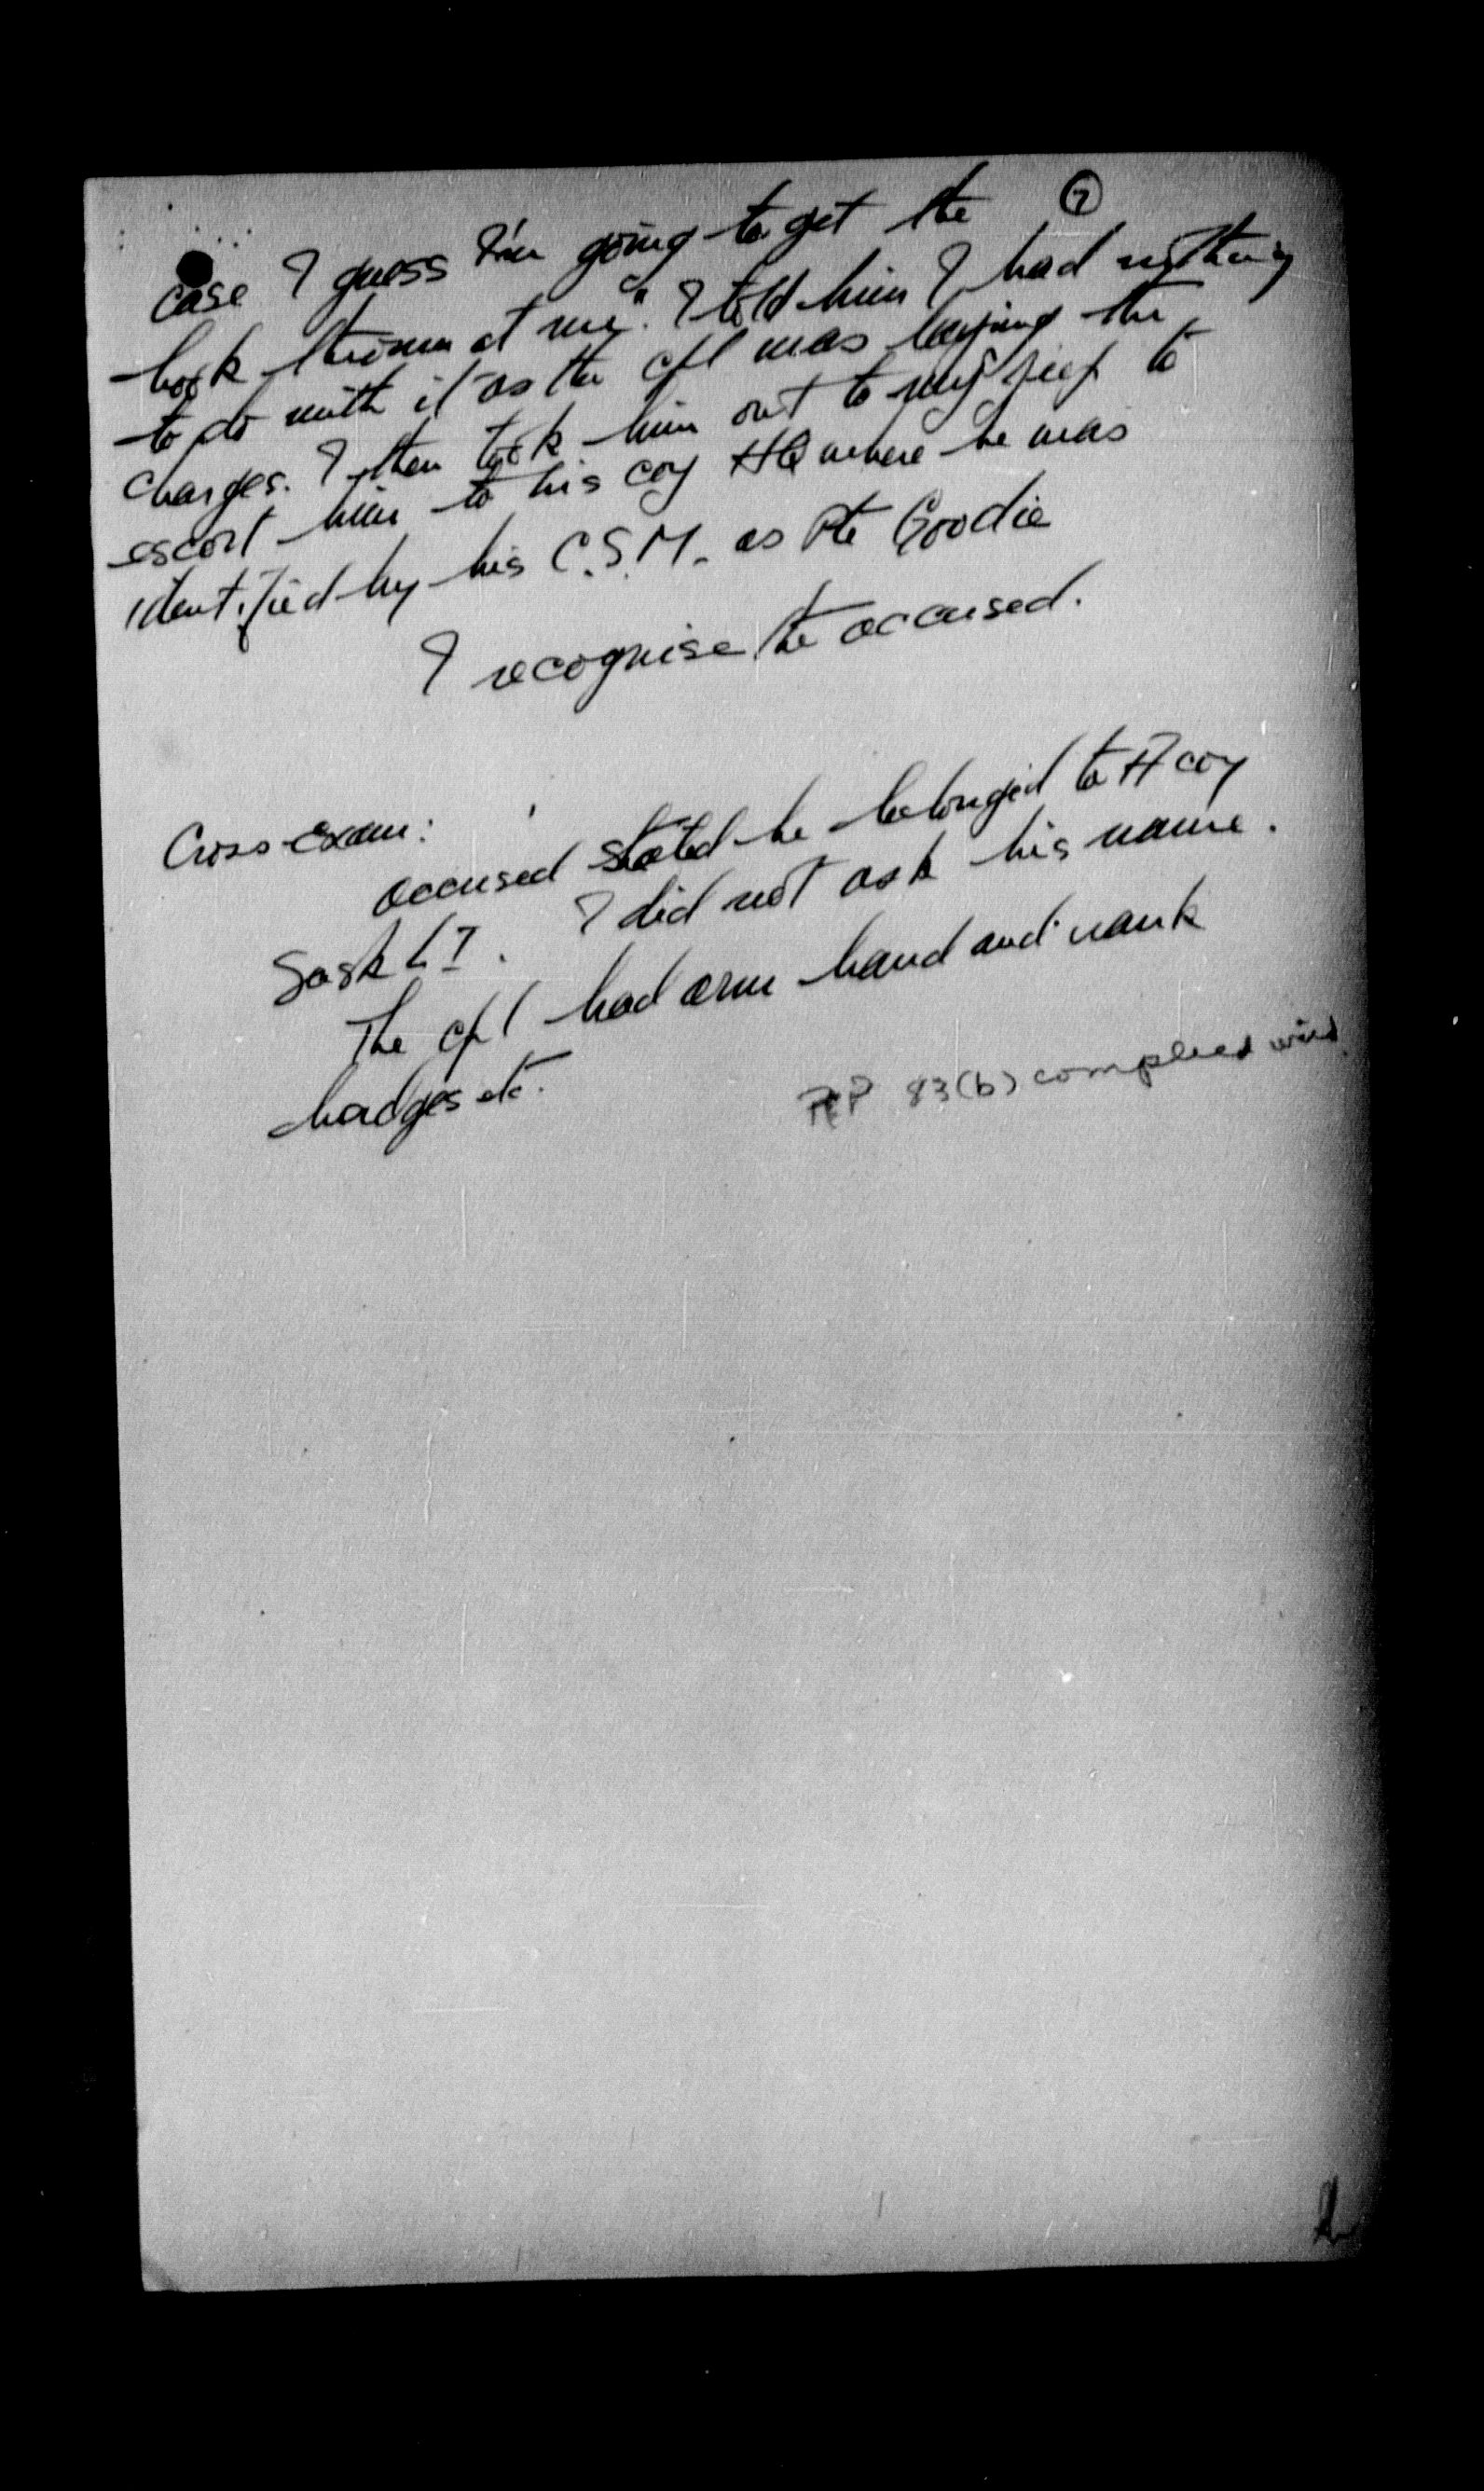 7
case I guess I'm going to get the
book thrown at me". I told him I had nothing
to do with it as the cpl was laying the
charges. I then took him out to my jeep to
escort him to his coy HQ where he was
identified by his C.S.M. as Pte Goodie
I recognise the accused.
Cross-Exam:
accused stated he belonged to A coy
Sask L I. I did not ask his name.
The cpl had arm band and rank
badges etc.
RP 83(b) complied with